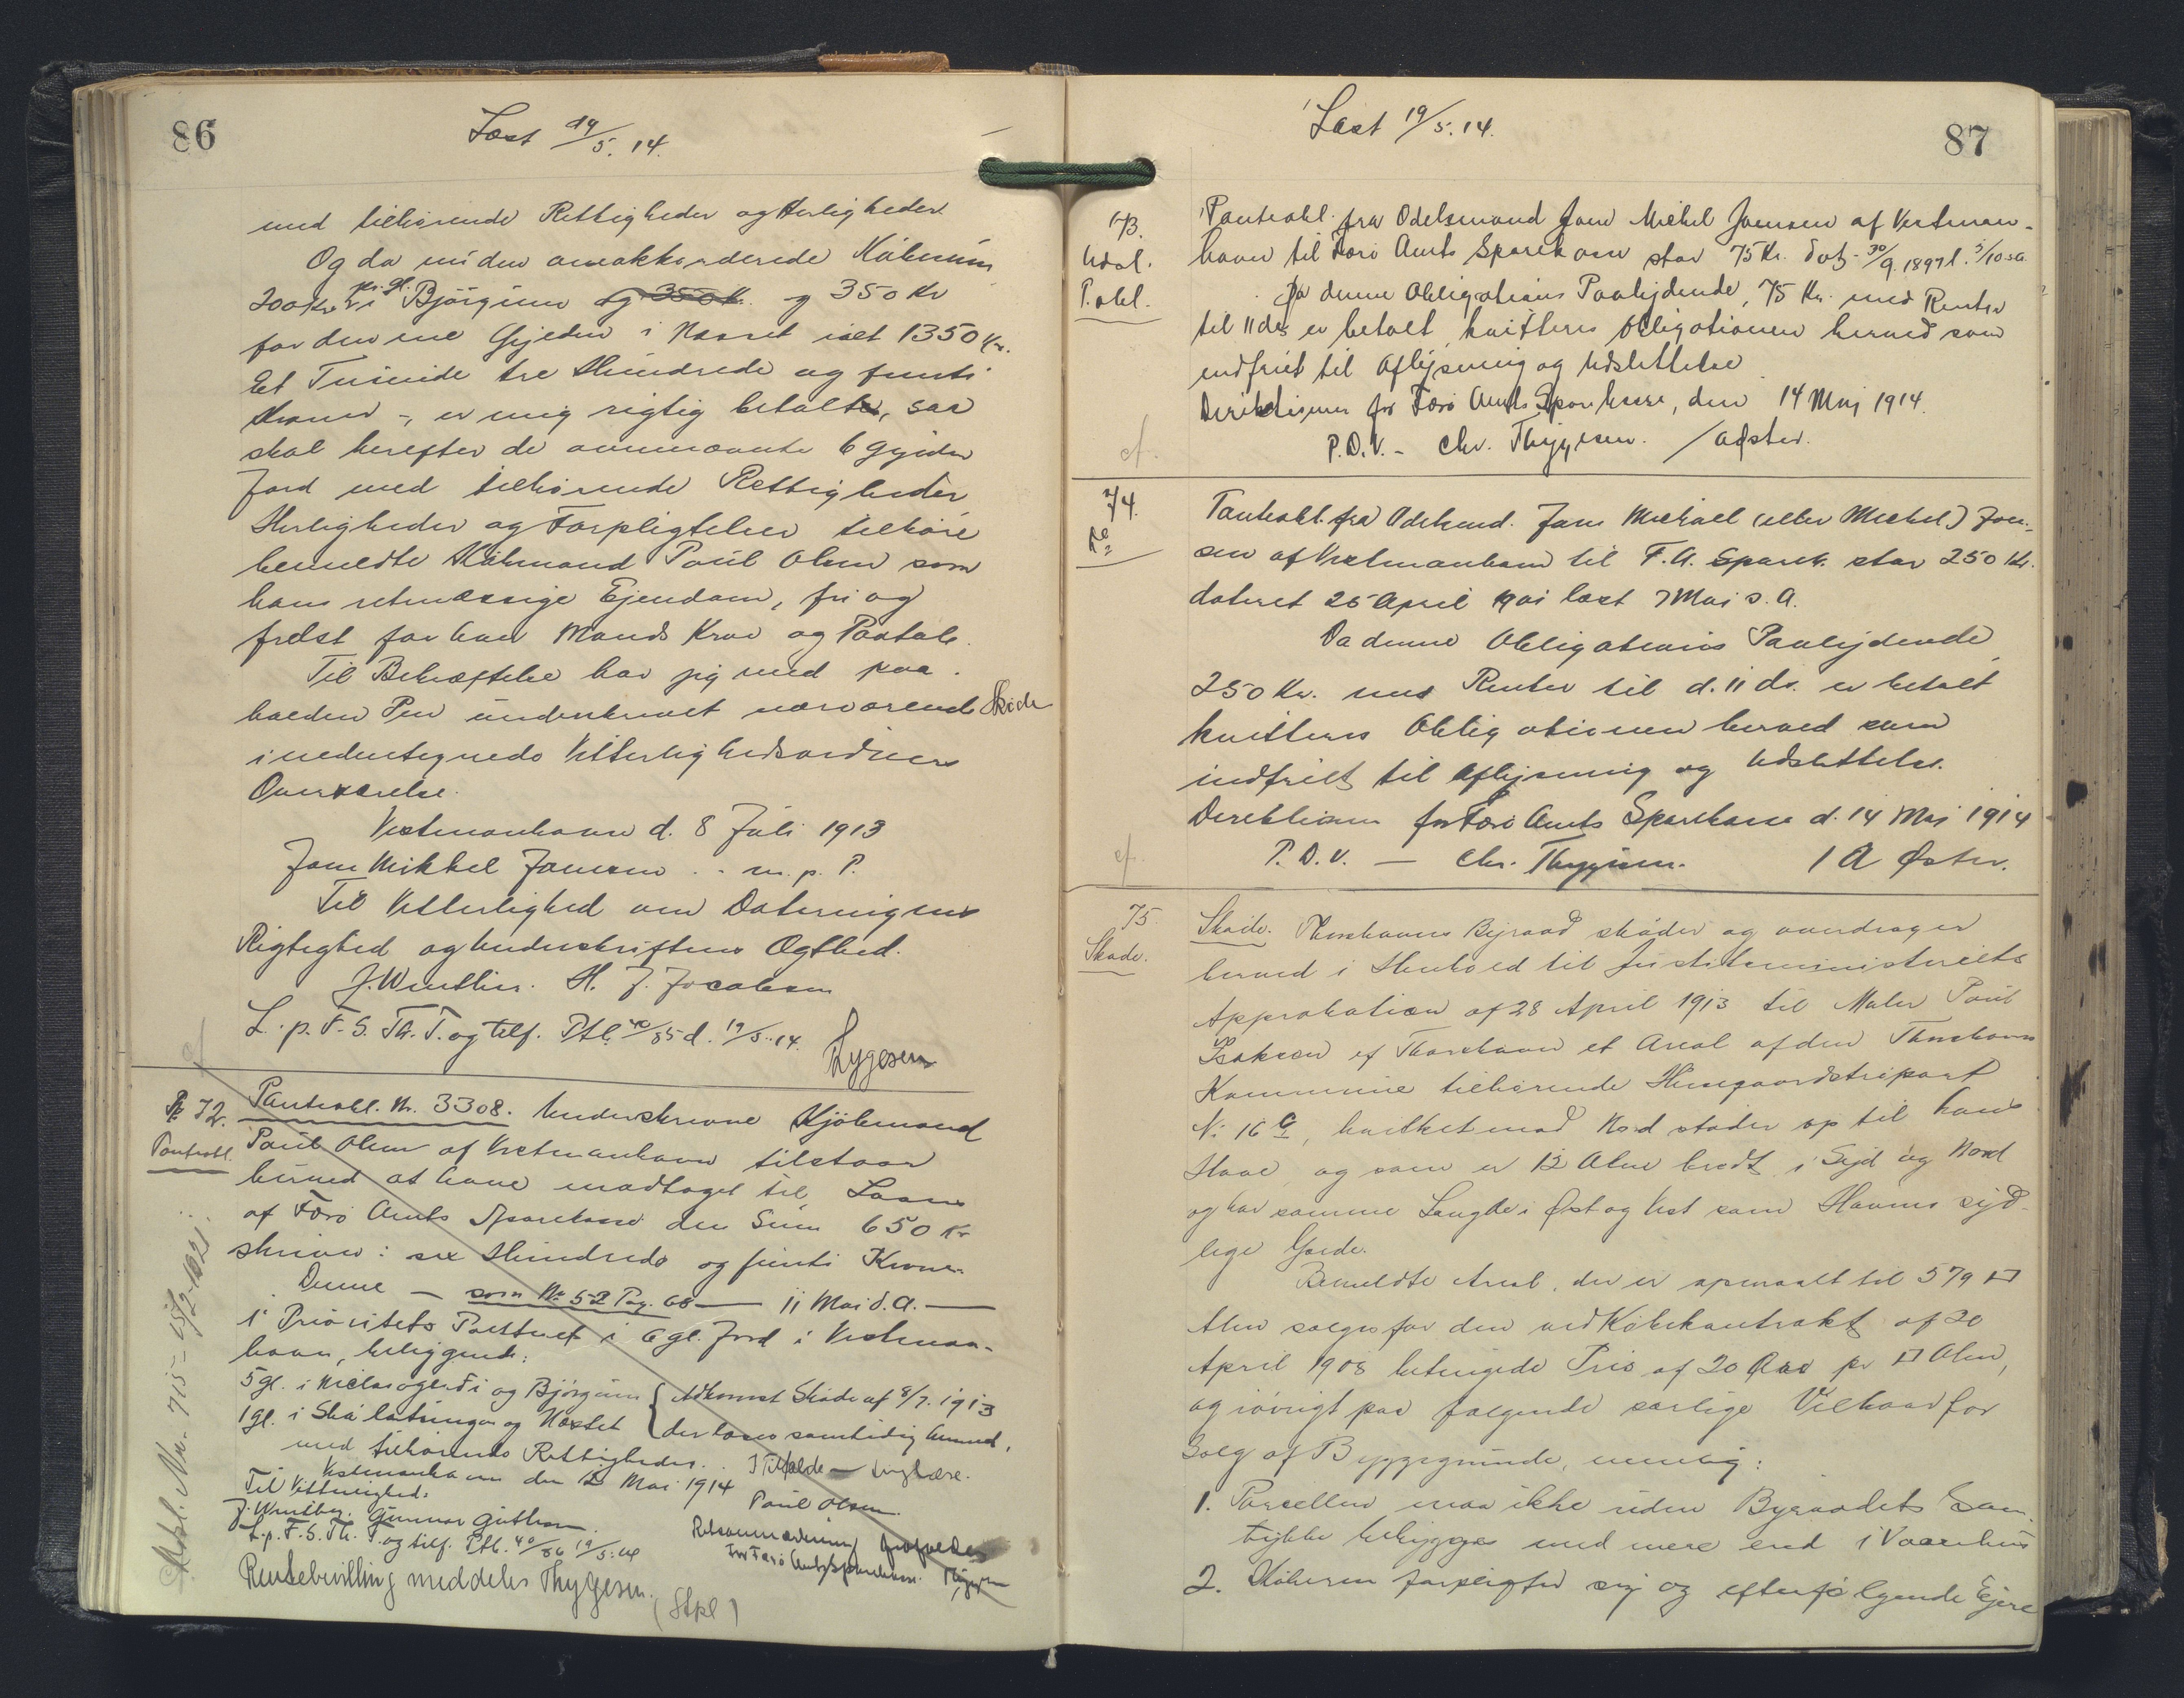 86
Læst 19/5. 14.
med tilhørende Rettigheder og Herligheder.
Og da nu den omakkorderede Købesum
200 Kr pr. gl. i Bjørgum og 350 Kr og 350 Kr
for den ene Gylden i Hasset ialt 1350 Kr.
Et Tusinde tre Hundrede og femti
Kroner -, er mig rigtig betalte, saa
skal herefter de ommeldte 6 Gylden
Jord med tilhørende Rettigheder
Herligheder og Forpligtelser tilhøre
bemeldte Købmand Poul Olsen som
hans retmæssige Ejendom, fri og
frelst for hver Mands Krav og Paatale.
Til Bekræftelse har jeg med paa-
holden Pen underskrevet nærværende Skøde
i nedentegnede Vitterlighedsvidners
Overværelse.
Vestmanhavn d. 8 Juli 1913
Jens Mikkel Joensen . . m. p. P.
Til Vitterlighed om Dateringens
Rigtighed og Underskriftens Ægthed.
J. Wenthin. H. J. Jacobsen
L. p. F. S. Th. T. og tilf. Ptb. 40/85 d. 19/5. 14.
Thygesen
R. 72.
Pantobl.
Pantobl. Nr. 3308. Underskrevne Kjøbmand
Poul Olsen af Vestmanhavn tilstaar
herved at have modtaget til Laans
af Færø Amts Sparekasse den Sum 650 Kr
skriver: sex Hundrede og femti Kroner.
Denne — som Nr 52 Pag. 68 — 11 Mai d. A. —
1' Prioritets Panteret i 6 gl. Jord i Vestman-
havn, beliggende:
5 gl. i Nielsagerdi og Bjørgum { Adkomst Skøde af 8/7. 1913
1 gl. i Skálatúngum og Hasset { der læses samtidig hermed.
med tilhørende Rettigheder. I Tilfælde — tinglære.
Vestmanhavn den 12 Mai 1914
Poul Olsen.
Til Vitterlighed:
J. Wenthin. Gunnar Guttesen.
L. p. F. S. Th. T. og tilf. Ptb. 40/86 19/5. 14
Retsanmærkning frafaldes
For Færø Amts Sparekasse. Thygesen
Rentebevilling meddeles Thygesen.
(Stpl)
Afl. Nr. 715 - 15/2-1921.
87
Læst 19/5. 14.
73.
Udsl.
P. obl.
Pantobl. fra Odelsmand Jens Michel Joensen af Vestman-
havn til Færø Amts Sparekasse stor 75 Kr. dat. 30/9. 1897 l. 5/10 s.a.
Da denne Obligations Paalydende, 75 Kr. med Renter
til 11 ds er betalt, kvitteres Obligationen herved som
indfriet til Aflysning og Udslettelse
Direktionen for Færø Amts Sparekasse, den 14 Maj 1914.
P.D.V. - Chr. Thygesen. / A Øster.
cf.
74.
Do
Pantobl. fra Odelsmd. Jens Michael (eller Michel) Joen-
sen af Vestmanhavn til F. A. Sparek. stor 250 Kr.
dateret 25 April 1901 læst 7 Mai s. A.
Da denne Obligations Paalydende,
250 Kr. med Renter til d. 11 ds. er betalt
kvitteres Obligationen herved som
indfriet til Aflysning og Udslettelse.
Direktionen for Færø Amts Sparekasse d. 14 Maj 1914
P. D. V. — Chr. Thygesen. / A Øster.
cf.
75.
Skøde.
Skøde. Thorshavns Byraad skøder og overdrager
herved i Henhold til Justitsministeriets
Approbation af 28 April 1913 til Maler Poul
Isaksen af Thorshavn et Areal af den Thorshavns
Kommune tilhørende Husegaardstrapart
Nr. 16 a, hvilket mod Nord støder op til hans
Have, og som er 12 Alen bredt i Syd og Nord
og har samme Længde i Øst og Vest som Havens syd-
lige Gærde.
Bemeldte Areal, der er opmaalt til 579 □
Alen sælges for den ved Købekontrakt af 20
April 1908 betingede Pris af 20 Øre pr □ Alen,
og iøvrigt paa følgende særlige Vilkaar for
Salg af Byggegrunde, nemlig:
1. Parcellen maa ikke uden Byraadets Sam-
tykke bebygges med mere end 1 Vaanhus
2. Køberen forpligter sig og efterfølgende Ejere